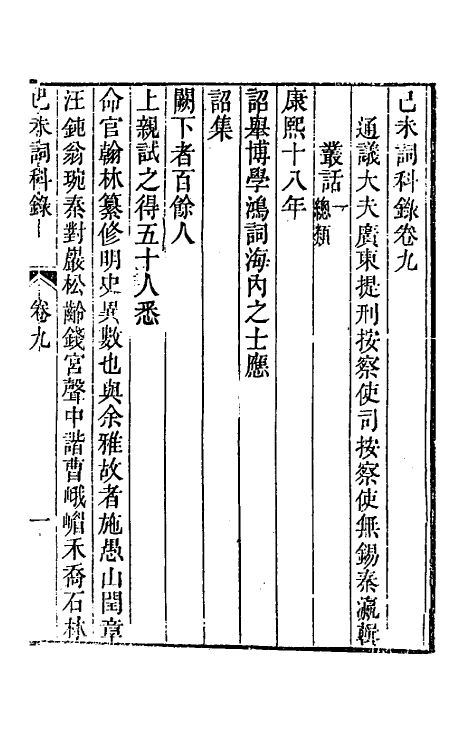 己未詞科錄卷九
通議大夫廣東提刑按察使司按察使無錫秦瀛輯
叢話一總類
康熙十八年
詔舉博學鴻詞海內之士應
詔集
闕下者百餘人
上親試之得五十人悉
命官翰林纂修明史異數也與余雅故者施愚山閏章
汪鈍翁琬秦對嚴松齡錢宮聲中諧曹峨嵋禾喬石林
己未詞科錄
卷九
一